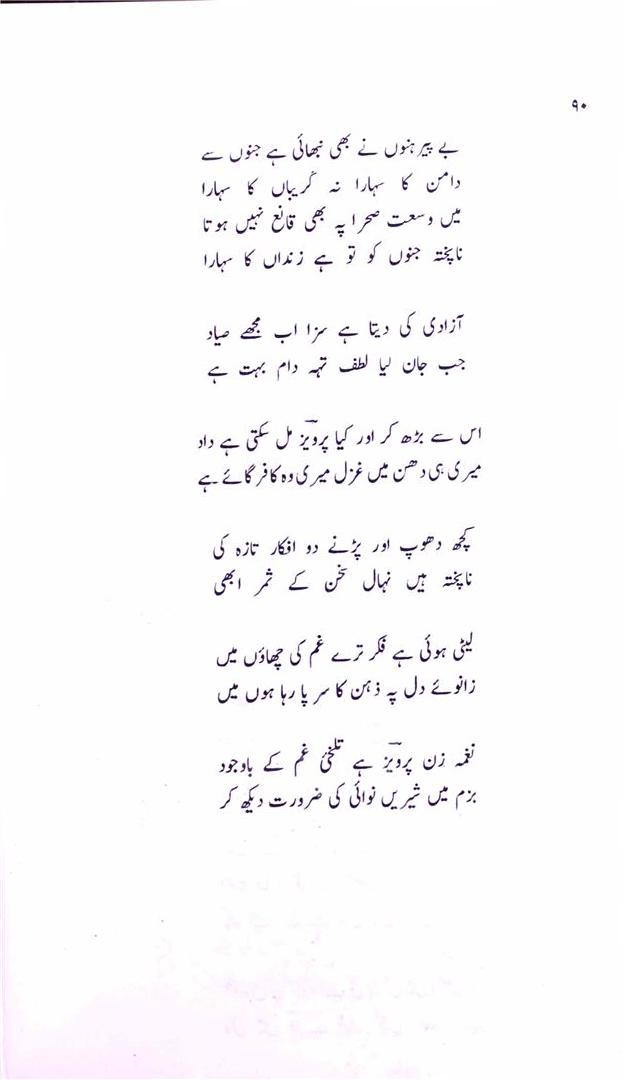 ۹۰
بے پیرہنوں نے بھی نبھائی ہے جنوں سے
دامن کا سہارا نہ گریباں کا سہارا
میں وسعت صحرا پہ بھی قانع نہیں ہوتا
ناپختہ جنوں کو تو ہے زنداں کا سہارا
آزادی کی دیتا ہے سزا اب مجھے صیاد
جب جان لیا لطف تہہ دام بہت ہے
اس سے بڑھ کر اور کیا پرویزؔ مل سکتی ہے داد
میری ہی دھن میں غزل میری وہ کافر گائے ہے
کچھ دھوپ اور پڑنے دو افکار تازہ کی
ناپختہ ہیں نہال سخن کے ثمر ابھی
لیٹی ہوئی ہے فکر ترے غم کی چھاؤں میں
زانوئے دل پہ ذہن کا سر پا رہا ہوں میں
نغمہ زن پرویزؔ ہے تلخیٔ غم کے باوجود
بزم میں شیریں نوائی کی ضرورت دیکھ کر